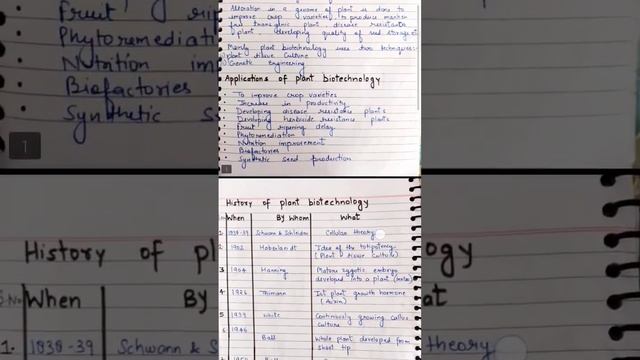 Alteration in a genome of plant is done to
improve crop varieties, to produce marker
free transgenic plant disease resistance
plant developing quality of seed storage
Mainly plant biotechnology uses two techniques:-
plant tissue culture
Genetic Engineering
Applications of plant biotechnology
• To improve crop varieties
• Increase in productivity
• Developing disease resistance plants
• Developing herbicide resistance plants
• Fruit ripening delay
• Phytoremediation
• Nutrition improvement
• Biofactories
• Synthetic seed production
1
History of plant biotechnology
When By Whom What
1. 1838-39 Schwann & Schleiden Cellular theory
2. 1902 Haberlandt Idea of the totipotency
(Plant tissue culture)
3. 1904 Hanning Mature zygotic embryo
developed into a plant
4. 1926 Thimann Ist plant growth hormone
(Auxin)
5. 1939 White Continously growing callus
culture
6. 1946 Ball Whole plant developed from
shoot tip